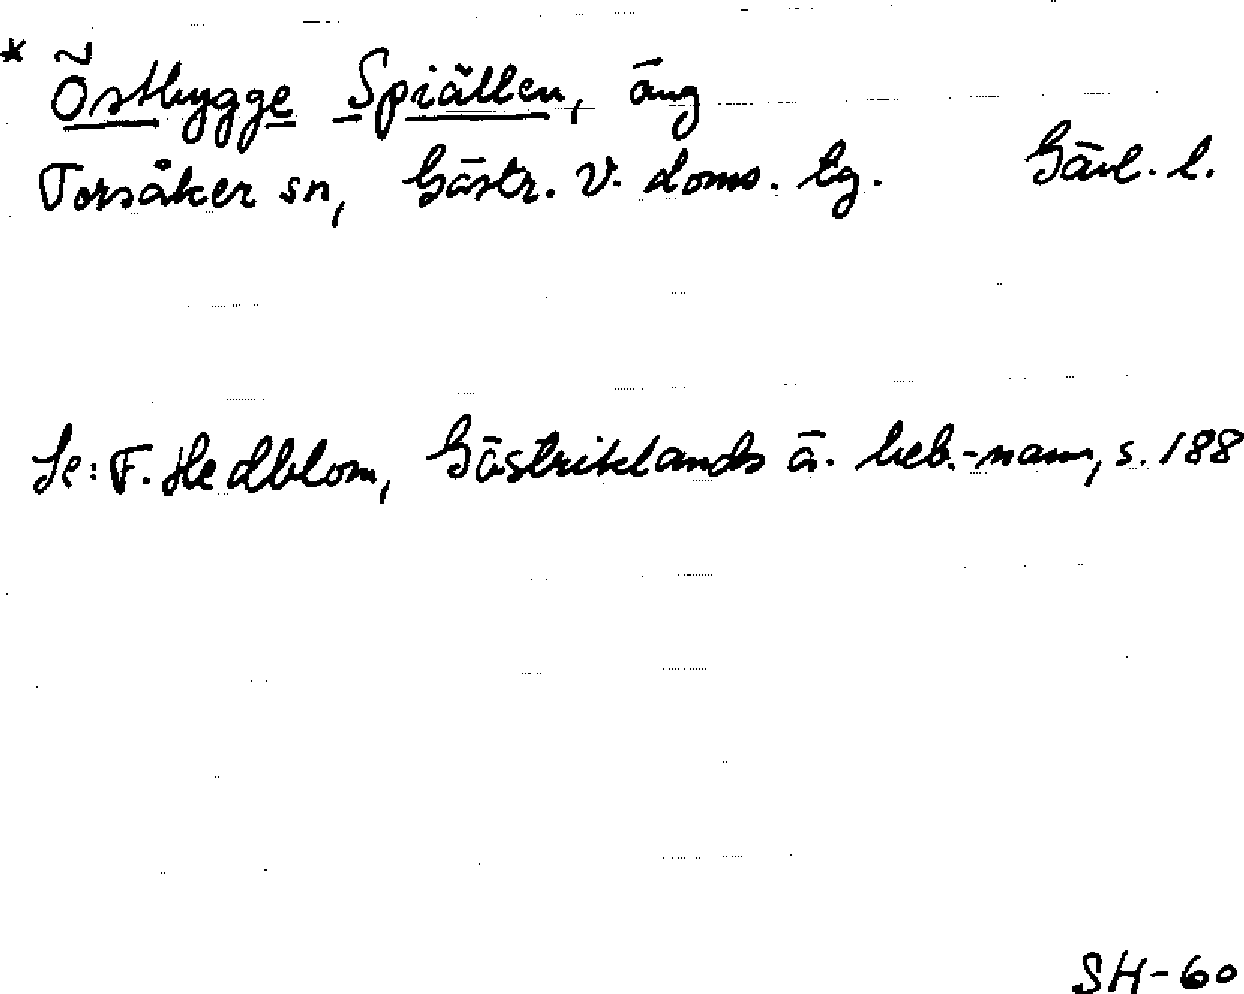 * Östbygge Spiällen, äng
Torsåker sn, Gästr. V. doms. tg. Gävl. l.
Se: F. Hedblom, Gästriklands ä. beb.-namn, s. 188
SH-60